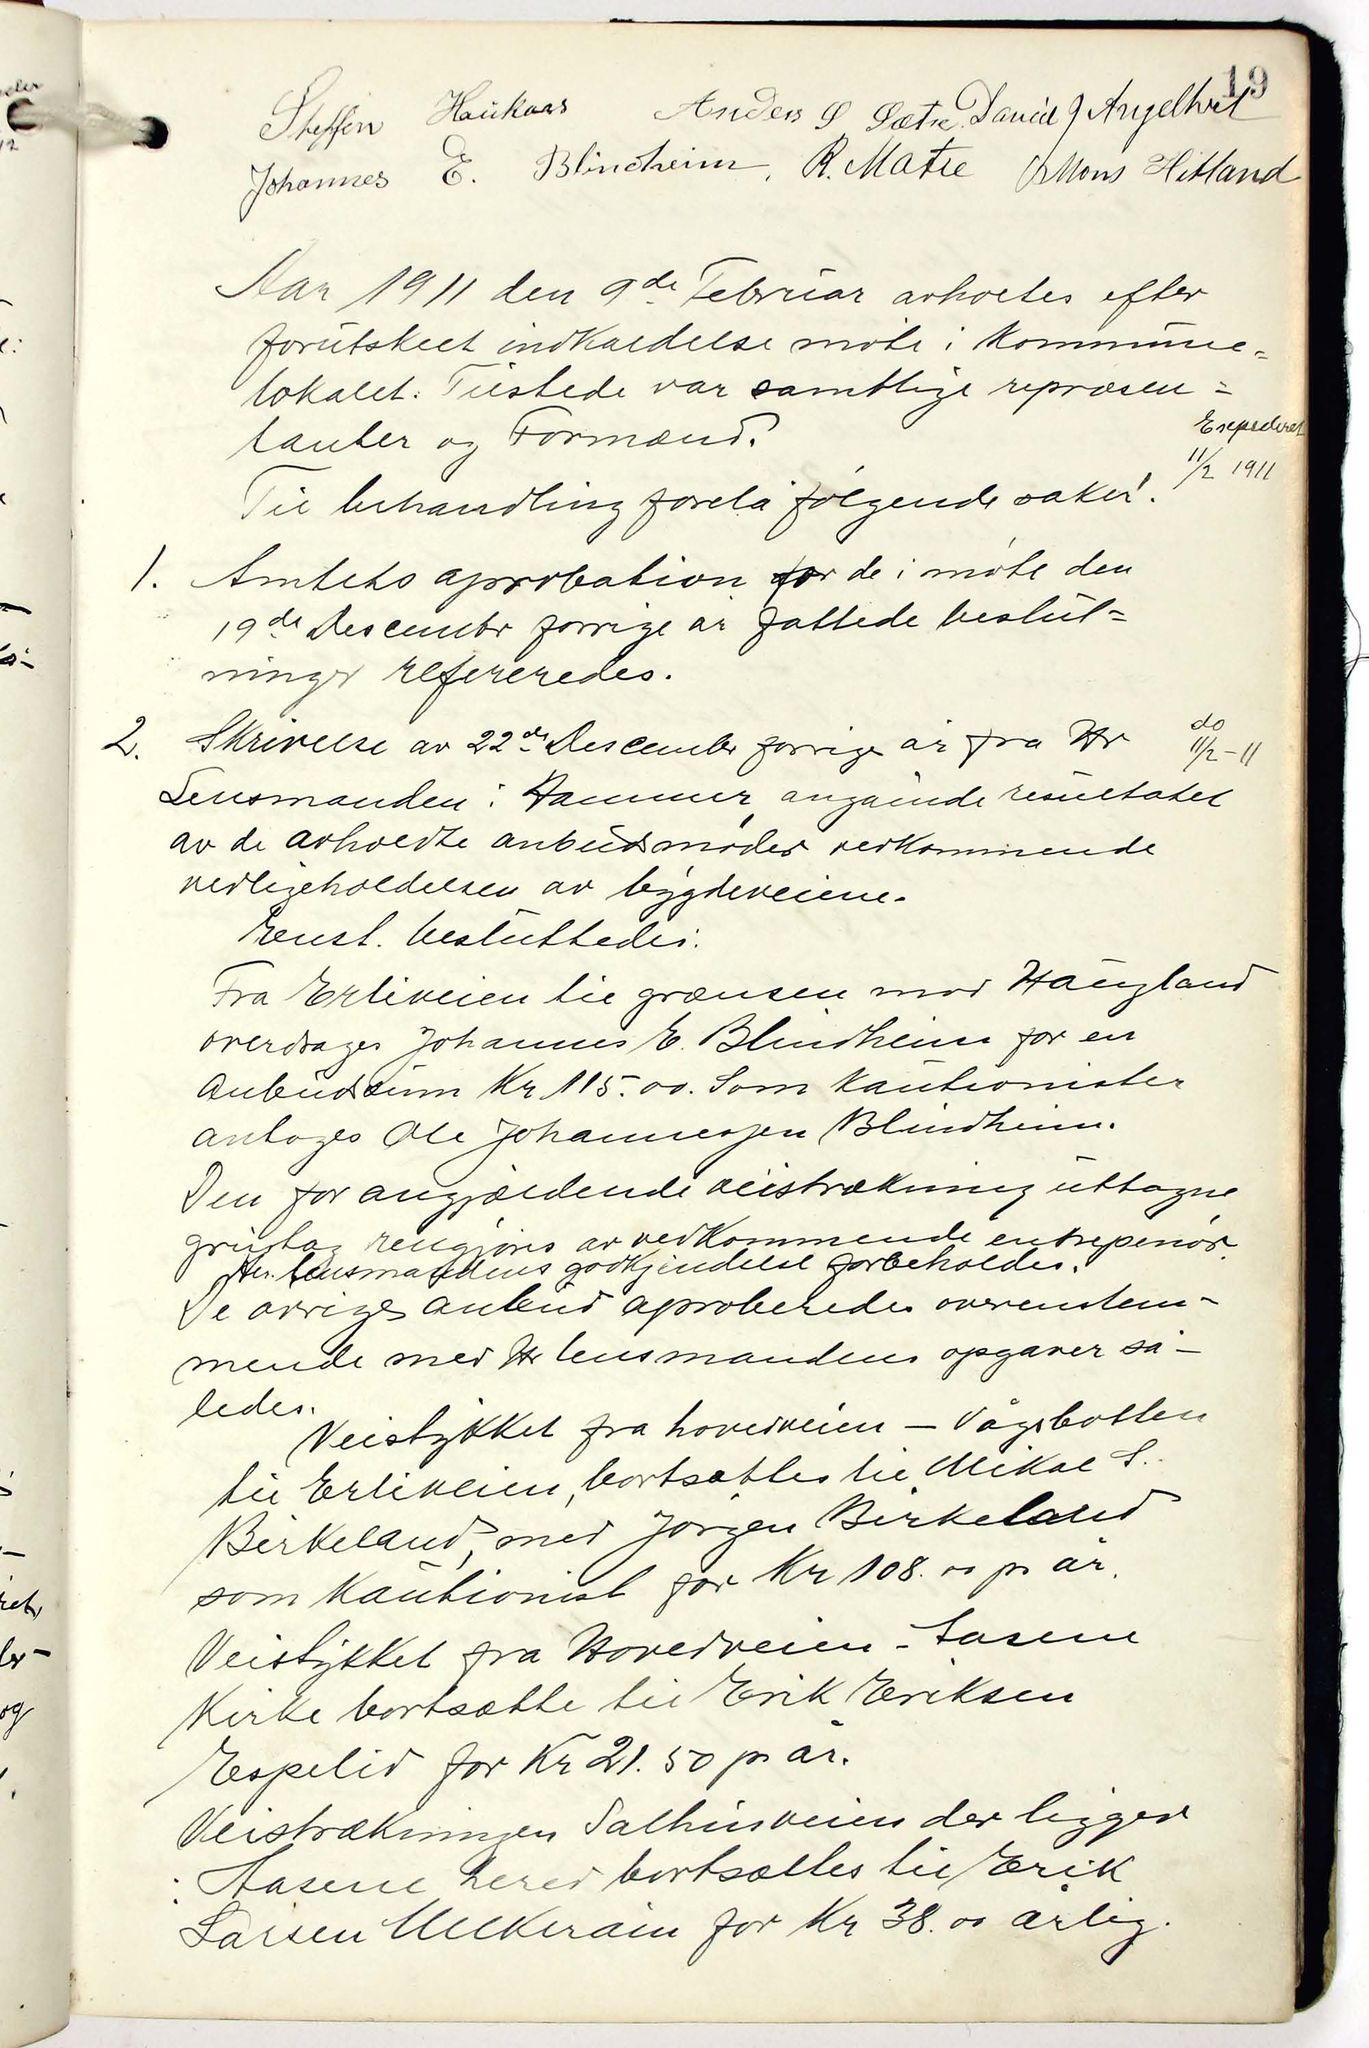 19
Steffen Haukaas Anders S Sætre David J Angeltvet
Johannes E. Blindheim, R. Matre Mons Hitland
Aar 1911 den 9de Februar avholdtes efter
forutskeet indkaldelse møte i kommune-
lokalet. Tilstede var samtlige repræsen-
tanter og Formænd.
Expederet
11/2 1911
Til behandling forelå følgende saker:
1. Amtets aprobation for de i møte den
19de Descembr forrige år fattede beslut-
ninger refereredes.
2. Skrivelse av 22de Descembr forrige år fra Hr
do
11/2-11
Lensmanden i Hammer, angående resultatet
av de avholdte anbudsmøder vedkommende
vedligeholdelsen av bygdeveiene.
Enst. besluttedes:
Fra Erliveien til grænsen mod Haugland
overdrages Johannes E. Blindheim for en
Anbudsum Kr 115.00. Som kautionister
antoges Ole Johannessen Blindheim.
Den for angjældende veistrækning uttagne
grustag rengjøres av vedkommende entrepenør.
Hr. lensmandens godkjendelse forbeholdes.
De øvrige anbud aproberedes overenstem-
mende med Hr lensmandens opgaver så-
ledes.
Veistykket fra hovedveien – Vågsbotten
til Erliveien, bortsættes til Mikal S.
Birkeland, med Jørgen Birkeland
som Kautionist for Kr 108.00 pr år.
Veistykket fra Hovedveien - Aasene
Kirke bortsætte til Erik Eriksen
Espelid for Kr 21.50 pr år.
Veistrækningen Salhusveien der ligger
i Aasene hered bortsættes til Erik
Larsen for Kr 38.00 årlig.